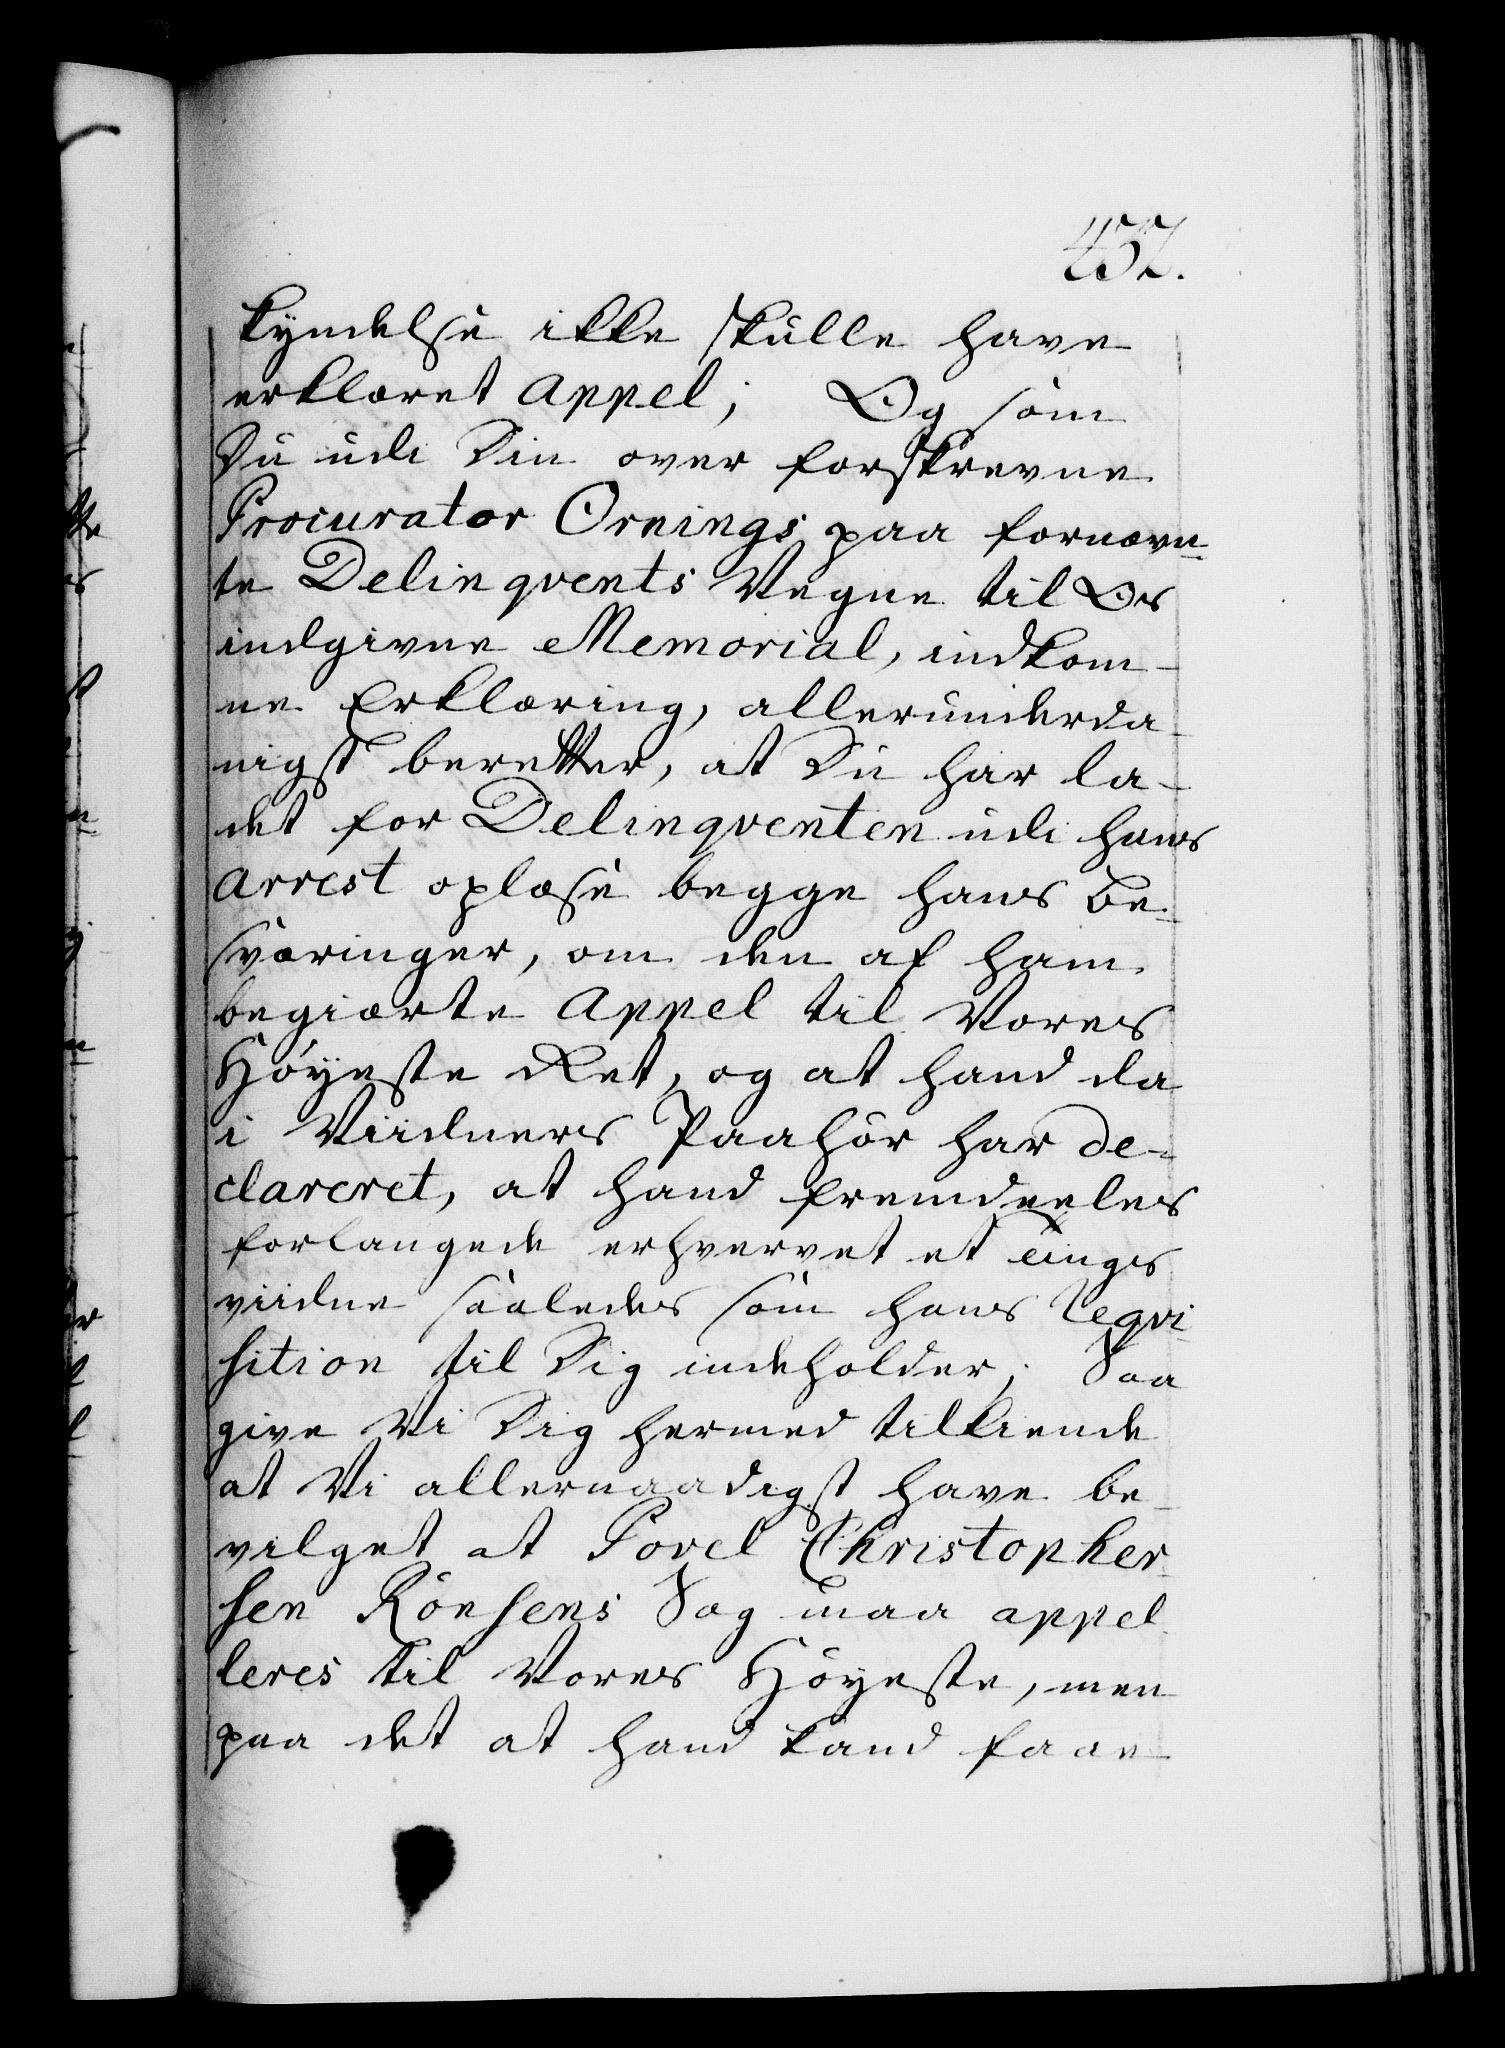 452.
kyndelse ikke skulle have
erklæret Appel; Og som
Du udi Din over forskrevne
Procurator Ornings paa fornævn¬
te Delinqvents Vegne til Os
indgivne Memorial, indkom-
ne Erklæring, allerunderda-
nigst beretter, at Du har la-
det for Delinqventen udi hans
Arrest oplæse begge hans be-
sværinger, om den af ham
begiærte Appel til Vores
Höyeste Ret, og at hand da
i Viidners Paahör har de-
clareret, at hand fremdeeles
forlangede erhvervet et tings
viidne saaledes som hans Reqvi-
sition til Dig indeholder; Saa
give Vi Dig hermed tilkiende
at Vi allernaadigst have be-
vilget at Povel Christopher-
sen Rönsens Sag maa appel-
leres til Vores Höyeste, men
paa det at hand kand faae